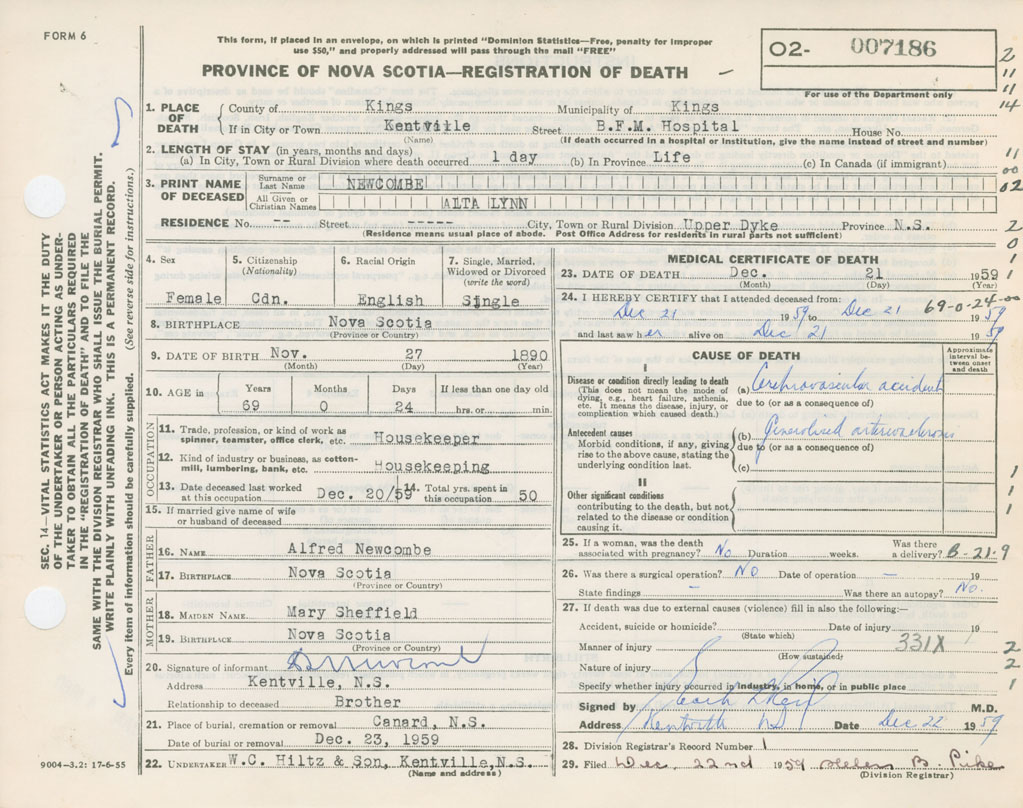 FORM 6
This form, if placed in an envelope, on which is printed "Dominion Statistics—Free, penalty for improper
use $50," and properly addressed will pass through the mail "FREE"
PROVINCE OF NOVA SCOTIA—REGISTRATION OF DEATH
02- 007186
For use of the Department only
2
11
11
14
11
00
02
2
0
1
1. PLACE OF DEATH County of Kings Municipality of Kings
If in City or Town Kentville Street B.F.M. Hospital House No.
(Name) (If death occurred in a hospital or institution, give the name instead of street and number)
2. LENGTH OF STAY (in years, months and days)
(a) In City, Town or Rural Division where death occurred 1 day (b) In Province Life (c) In Canada (if immigrant)
3. PRINT NAME OF DECEASED Surname or Last Name NEWCOMBE
All Given or Christian Names ALTA LYNN
RESIDENCE No. -- Street ----- City, Town or Rural Division Upper Dyke Province N.S.
(Residence means usual place of abode. Post Office Address for residents in rural parts not sufficient)
4. Sex Female
5. Citizenship (Nationality) Cdn.
6. Racial Origin English
7. Single, Married, Widowed or Divorced (write the word) Single
8. BIRTHPLACE Nova Scotia
(Province or Country)
9. DATE OF BIRTH Nov. 27 1890
(Month) (Day) (Year)
10. AGE in Years Months Days If less than one day old
69 0 24 hrs. or min.
OCCUPATION
11. Trade, profession, or kind of work as
spinner, teamster, office clerk, etc. Housekeeper
12. Kind of industry or business, as cotton-
mill, lumbering, bank, etc. Housekeeping
13. Date deceased last worked
at this occupation Dec. 20/59
14. Total yrs. spent in
this occupation 50
15. If married give name of wife
or husband of deceased
FATHER
16. NAME Alfred Newcombe
17. BIRTHPLACE Nova Scotia
(Province or Country)
MOTHER
18. MAIDEN NAME Mary Sheffield
19. BIRTHPLACE Nova Scotia
(Province or Country)
20. Signature of informant
Address Kentville, N.S.
Relationship to deceased Brother
21. Place of burial, cremation or removal Canard, N.S.
Date of burial or removal Dec. 23, 1959
22. UNDERTAKER W.C. Hiltz & Son, Kentville, N.S.
(Name and address)
MEDICAL CERTIFICATE OF DEATH
23. DATE OF DEATH Dec. 21 1959
(Month) (Day) (Year)
24. I HEREBY CERTIFY that I attended deceased from: 69-0-24-00
Dec 21 1959 to Dec 21 1959
and last saw her alive on Dec 21 1959
CAUSE OF DEATH
Approximate interval between onset and death
I
Disease or condition directly leading to death
(This does not mean the mode of
dying, e.g., heart failure, asthenia,
etc. It means the disease, injury, or
complication which caused death.)
(a) Cerebrovascular accident
due to (or as a consequence of)
Antecedent causes
Morbid conditions, if any, giving
rise to the above cause, stating the
underlying condition last.
(b) Generalised arteriosclerosis
due to (or as a consequence of)
(c)
II
Other significant conditions
contributing to the death, but not
related to the disease or condition
causing it.
1
1
1
25. If a woman, was the death
associated with pregnancy? No Duration weeks. Was there
a delivery? B-21-9
26. Was there a surgical operation? NO Date of operation — 19
State findings - Was there an autopsy? No.
27. If death was due to external causes (violence) fill in also the following:—
Accident, suicide or homicide? Date of injury 19
(State which)
Manner of injury 331X
(How sustained)
Nature of injury
2
2
Specify whether injury occurred in industry, in home, or in public place 1
Signed by M.D.
Address Date Dec 22 1959
28. Division Registrar's Record Number 1
29. Filed Dec. 22nd 1959 Helen B. Pike
(Division Registrar)
SEC. 14—VITAL STATISTICS ACT MAKES IT THE DUTY
OF THE UNDERTAKER OR PERSON ACTING AS UNDER-
TAKER TO OBTAIN ALL THE PARTICULARS REQUIRED
IN THE "REGISTRATION OF DEATH" AND TO FILE THE
SAME WITH THE DIVISION REGISTRAR WHO SHALL ISSUE THE BURIAL PERMIT.
WRITE PLAINLY WITH UNFADING INK. THIS IS A PERMANENT RECORD.
Every item of information should be carefully supplied. (See reverse side for instructions.)
9004-3.2: 17-6-55